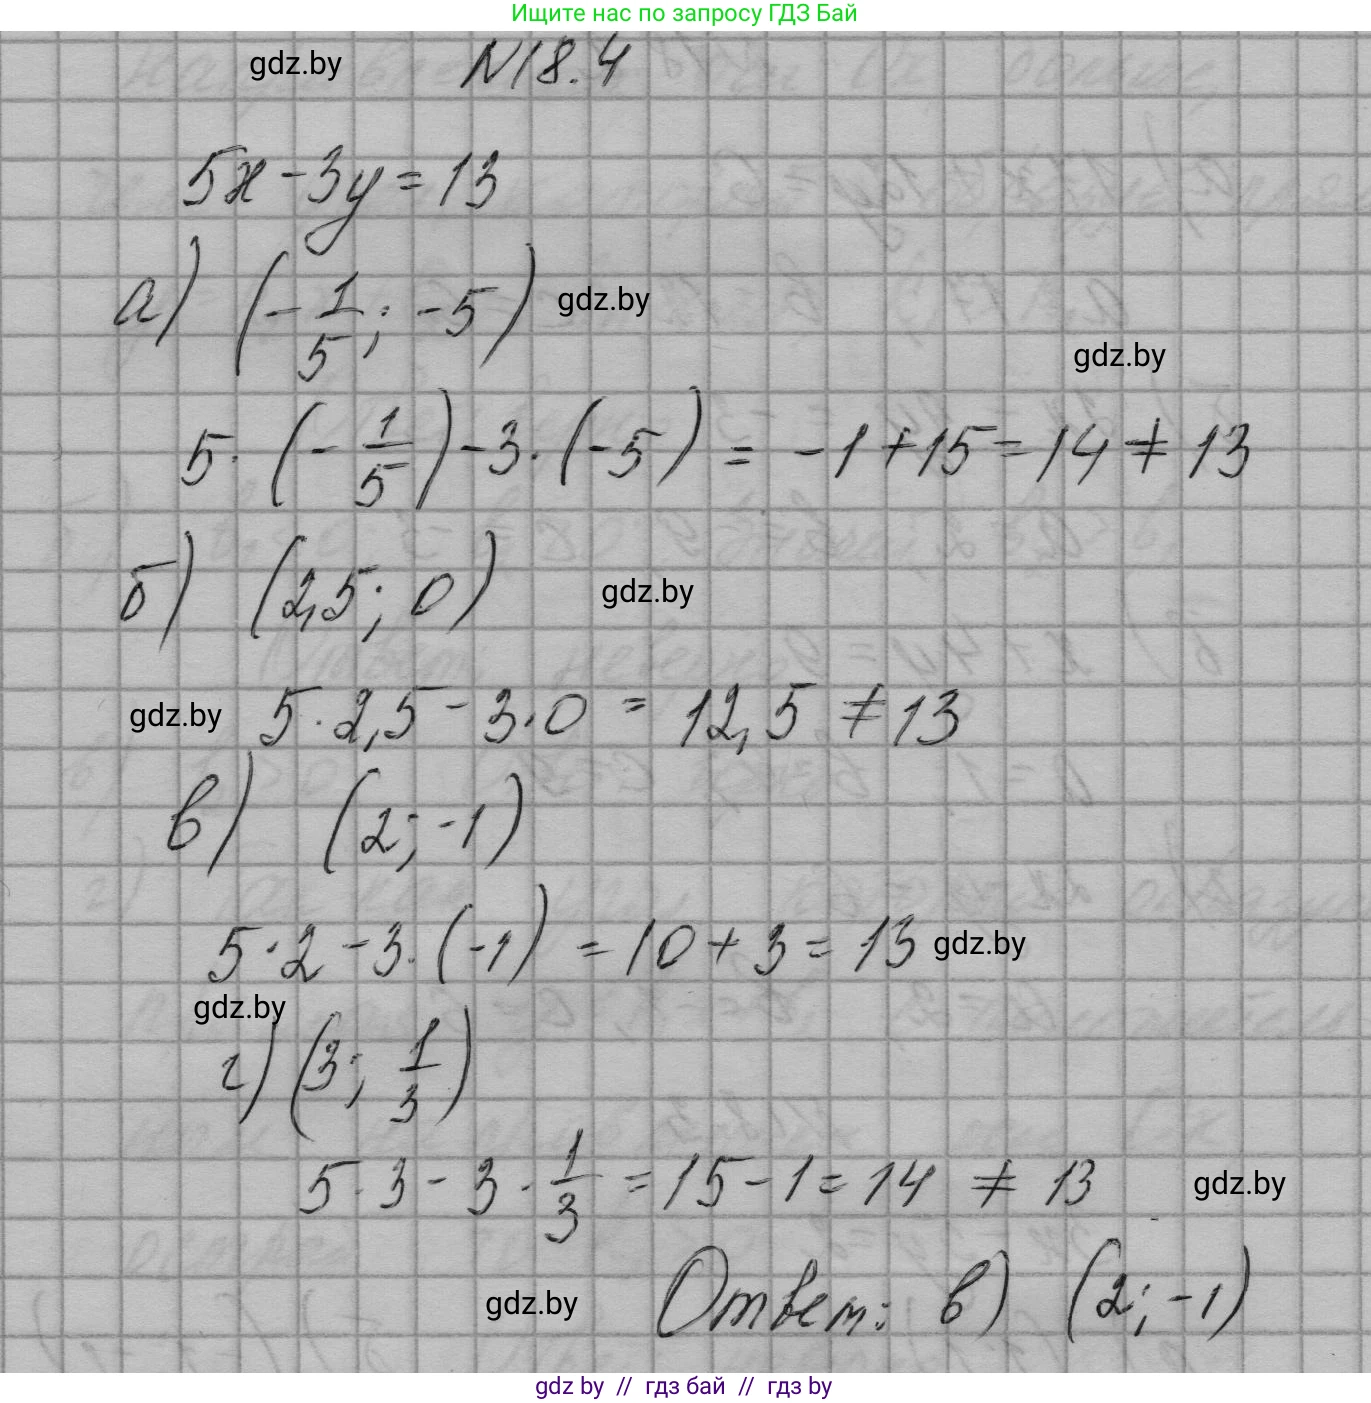 Ищите нас по запросу ГДЗ Бай
gdz.by N18.4
5x - 3y = 13
а) (-1/5; -5) gdz.by
gdz.by
5·(-1/5) - 3·(-5) = -1 + 15 = 14 ≠ 13
б) (2,5; 0) gdz.by
gdz.by 5·2,5 - 3·0 = 12,5 ≠ 13
в) (2; -1)
5·2 - 3·(-1) = 10 + 3 = 13 gdz.by
gdz.by
г) (3; 1/3)
5·3 - 3·1/3 = 15 - 1 = 14 ≠ 13 gdz.by
gdz.by Ответ: в) (2; -1)
gdz by // гдз бай // гдз by